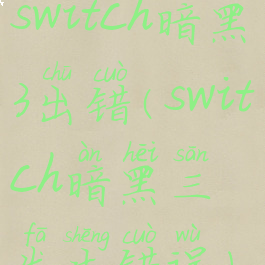 switch暗黑
chū cuò
3出错(swit
àn hēi sān
ch暗黑三
fā shēng cuò wù
发生错误)